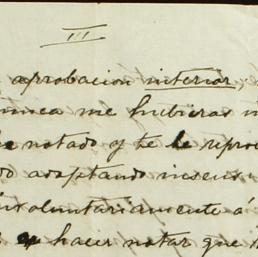 III
aprobacion interior,
nunca me hubieras
notado y te le repro
adoptando insens
involuntariamente á
hacer notar que